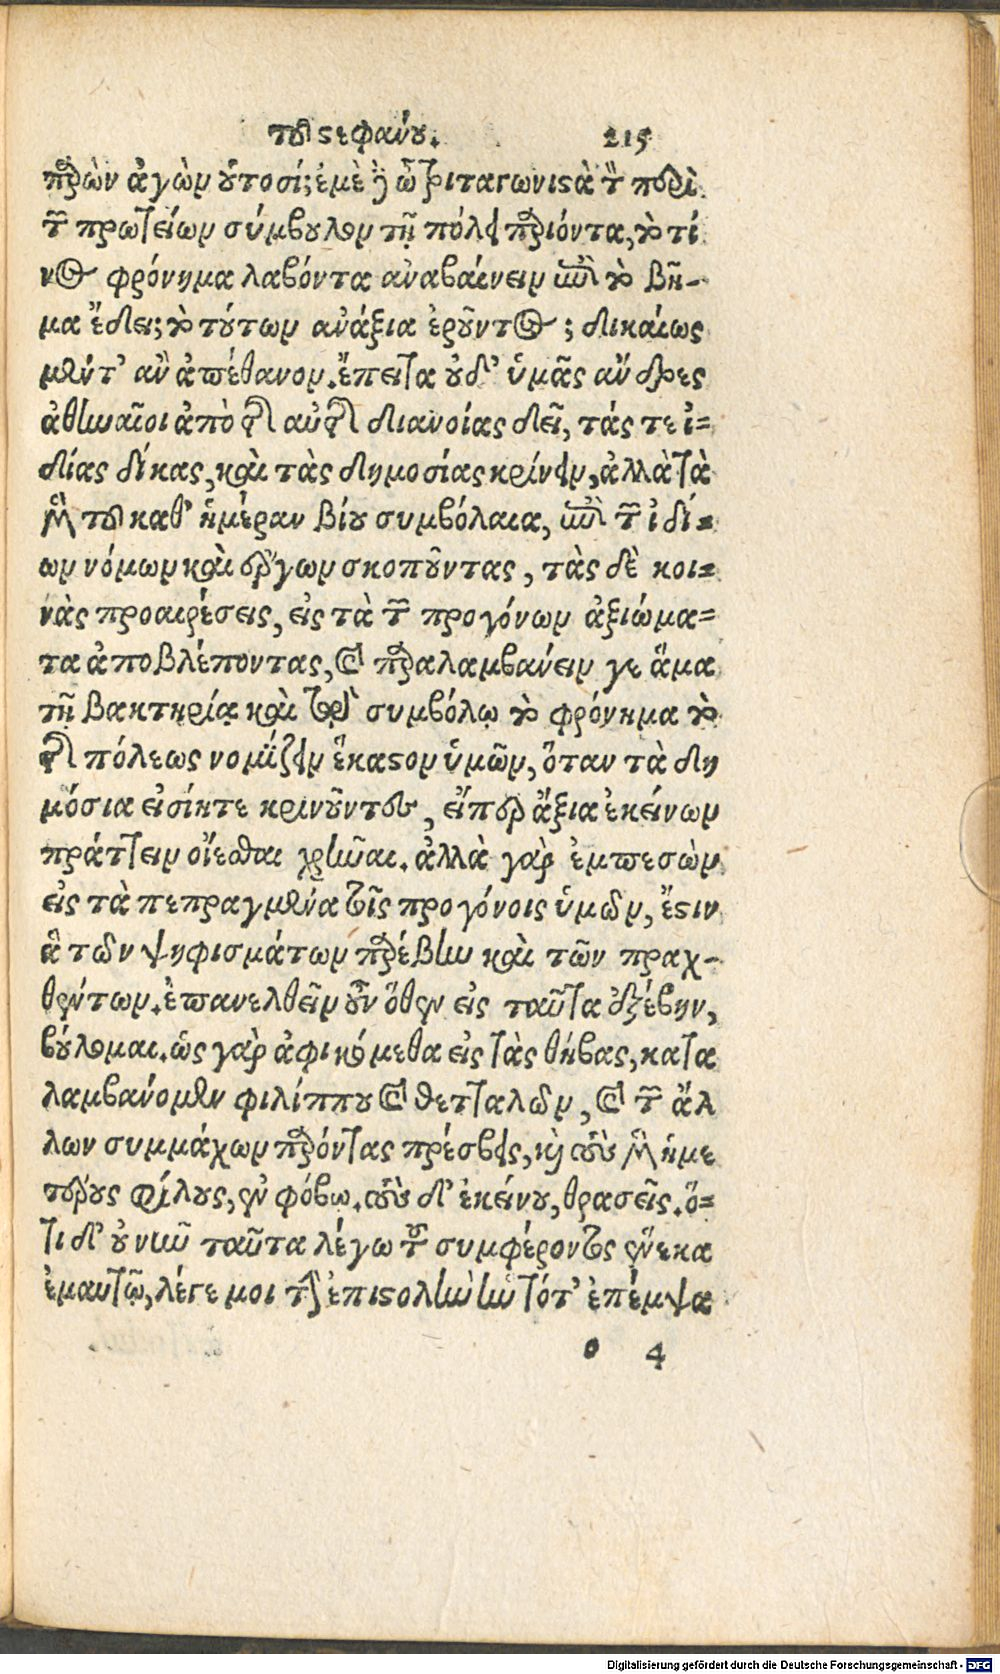 τοῦ στεφάνου. 215
παρὼν ἀγὼν οὑτοσί; ἐμὲ δὲ ὦ τριταγωνιστὰ τὸν περὶ
τῶν πρωτείων σύμβουλον τῇ πόλει παριόντα, τὸ τί
νος φρόνημα λαβόντα ἀναβαίνειν ἐπὶ τὸ βῆ-
μα ἔδει; τὸ τούτων ἀνάξια ἐροῦντος; δικαίως
μέντ' ἂν ἀπέθανον. ἔπειτα οὐδ' ὑμᾶς ἄνδρες
ἀθηναῖοι ἀπὸ τῆς αὐτῆς διανοίας δεῖ, τάς τε ἰ=
δίας δίκας, καὶ τὰς δημοσίας κρίνειν, ἀλλὰ τὰ
μὲν τοῦ καθ' ἡμέραν βίου συμβόλαια, ἐπὶ τῶν ἰδί=
ων νόμων καὶ ἔργων σκοποῦντας, τὰς δὲ κοι=
νὰς προαιρέσεις, εἰς τὰ τῶν προγόνων ἀξιώμα=
τα ἀποβλέποντας, καὶ παραλαμβάνειν γε ἅμα
τῇ βακτηρίᾳ καὶ τῷ συμβόλῳ τὸ φρόνημα τὸ
τῆς πόλεως νομίζειν ἕκαστον ὑμῶν, ὅταν τὰ δη
μόσια εἰσίητε κρινοῦντες, εἴπερ ἄξια ἐκείνων
πράττειν οἴεσθαι χρῆναι. ἀλλὰ γὰρ ἐμπεσὼν
εἰς τὰ πεπραγμένα τοῖς προγόνοις ὑμῶν, ἔστιν
ἃ τῶν ψηφισμάτων παρέβην καὶ τῶν πραχ-
θέντων. ἐπανελθεῖν οὖν ὅθεν εἰς ταῦτα ἐξέβην,
βούλομαι. ὡς γὰρ ἀφικόμεθα εἰς τὰς θήβας, κατα
λαμβάνομεν φιλίππου καὶ θετταλῶν, καὶ τῶν ἄλ
λων συμμάχων παρόντας πρέσβεις, καὶ τοὺς μὲν ἡμε
τέρους φίλους, ἐν φόβῳ. τοὺς δ' ἐκείνου, θρασεῖς. ὅ=
τι δ' οὐ νῦν ταῦτα λέγω τοῦ συμφέροντος ἕνεκα
ἐμαυτῷ, λέγε μοι τὴν ἐπιστολὴν ἣν τότ' ἐπέμψα
o 4
Digitalisierung gefördert durch die Deutsche Forschungsgemeinschaft - DFG